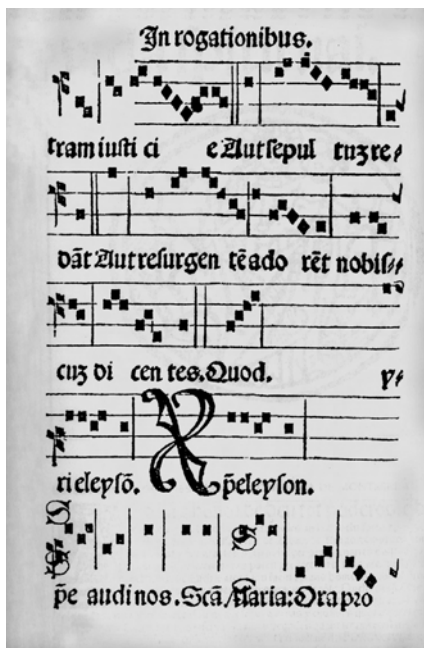 In rogationibus.
tram iusti ci e Aut sepul tuʒ re⸗
dāt Aut resurgen tē ado rēt nobis⸗
cuʒ di cen tes. Quod. y⸗
ri eleysō. X p̄eleyson.
p̄e audi nos. Scā Maria: Ora pro